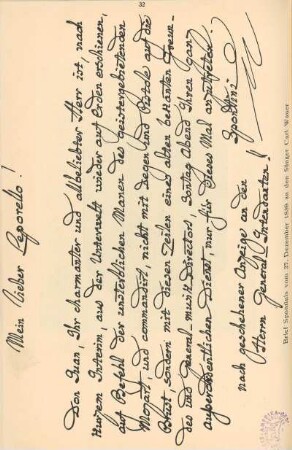 32
Mein lieber Leporello!
Don Juan, Ihr charmanter und allbeliebter Herr ist, nach
kurzem Interim, aus der Unterwelt wieder auf Erden erschienen,
auf Befehl der unsterblichen Manen des Geistergebietenden
Mozart, und commandirt, nicht mit Degen und Pistole auf die
Brust, sondern mit diesen Zeilen eines alten bekannten Freun-
des und General-Musik Directors, Sontag Abend Ihren ganz
außerordentlichen Dienst, nur für dieses Mal anzutreten.
nach geschehener Anzeige an den
Herrn General-Intendanten!
Spontini
Brief Spontinis vom 27. Dezember 1838 an den Sänger Carl Wauer